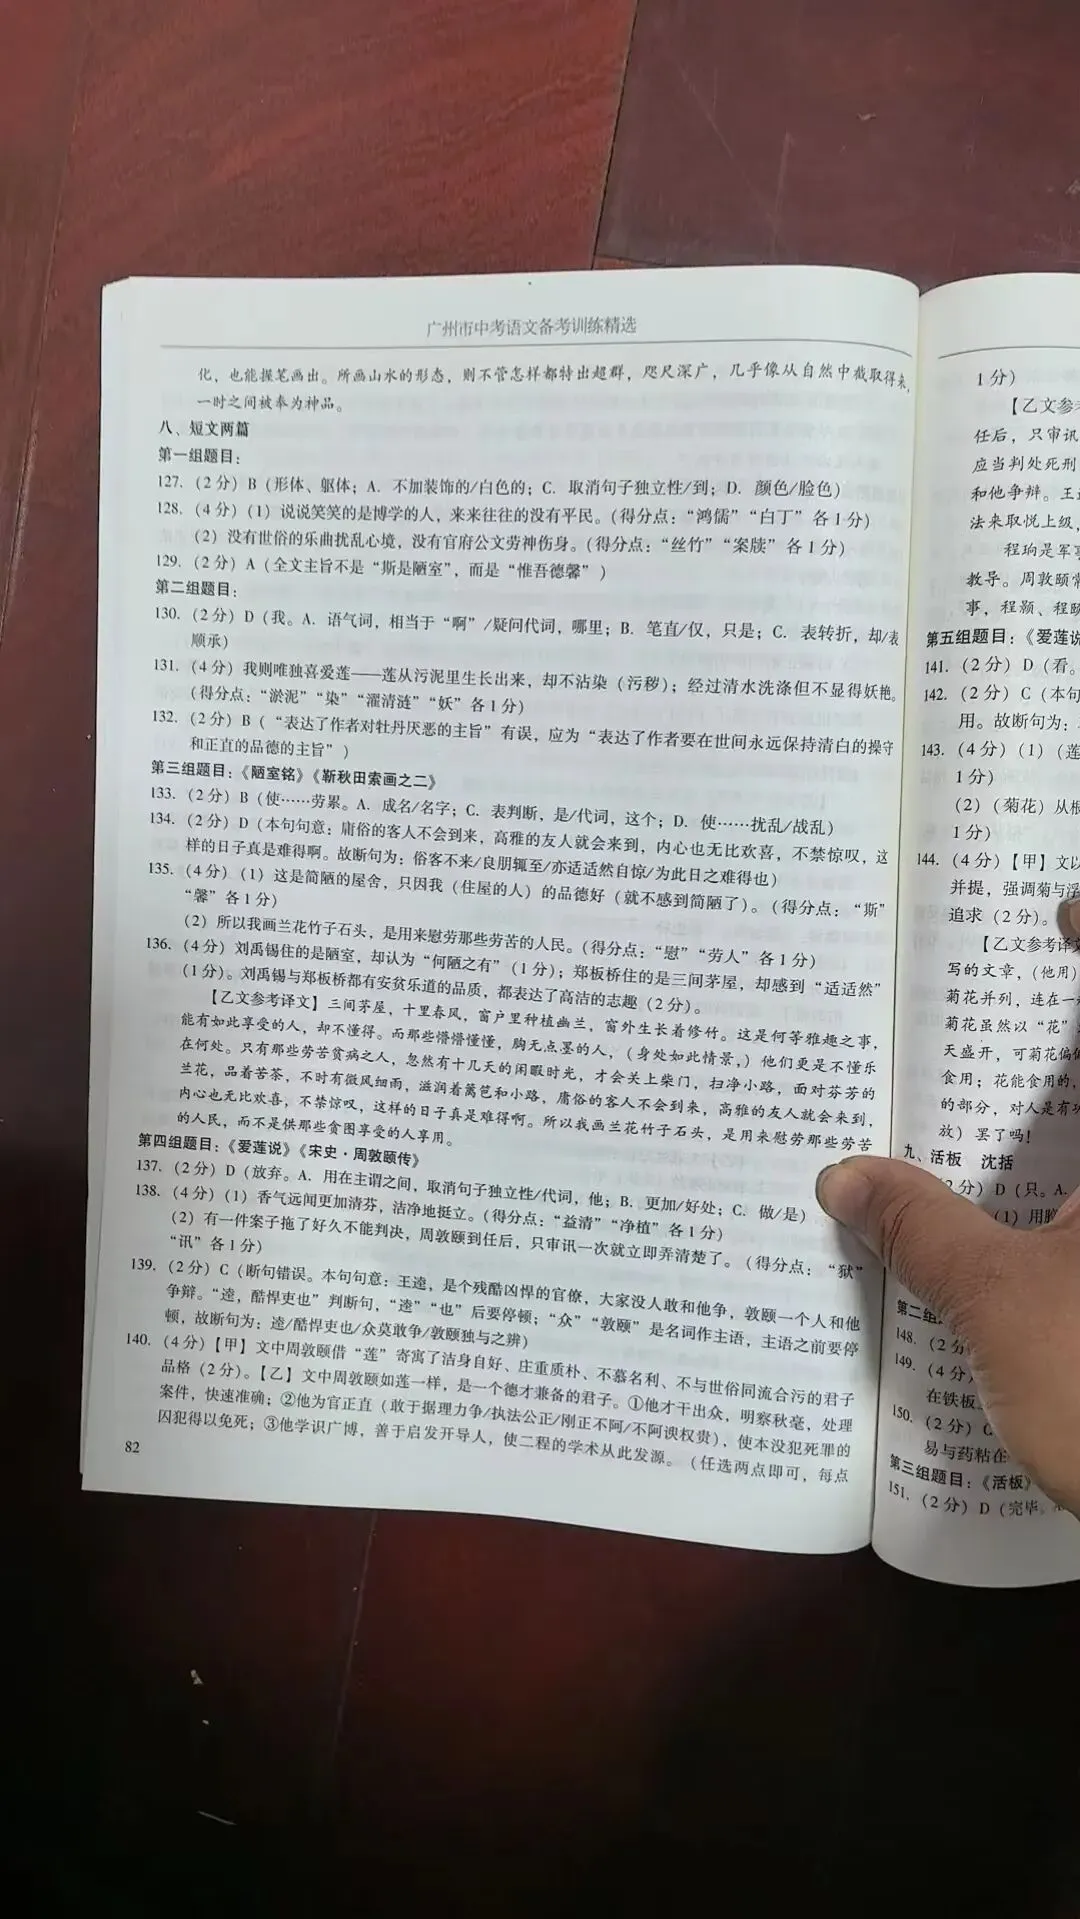 广州市中考语文备考训练精选
化，也能握笔画出。所画山水的形态，则不管怎样都特出超群，咫尺深广，几乎像从自然中截取得来，
一时之间被奉为神品。
八、短文两篇
第一组题目：
127.（2分）B（形体、躯体；A. 不加装饰的/白色的；C. 取消句子独立性/到；D. 颜色/脸色）
128.（4分）（1）说说笑笑的是博学的人，来来往往的没有平民。（得分点：“鸿儒”“白丁”各1分）
（2）没有世俗的乐曲扰乱心境，没有官府公文劳神伤身。（得分点：“丝竹”“案牍”各1分）
129.（2分）A（全文主旨不是“斯是陋室”，而是“惟吾德馨”）
第二组题目：
130.（2分）D（我。A. 语气词，相当于“啊”/疑问代词，哪里；B. 笔直/仅，只是；C. 表转折，却/表
顺承）
131.（4分）我则唯独喜爱莲——莲从污泥里生长出来，却不沾染（污秽）；经过清水洗涤但不显得妖艳。
（得分点：“淤泥”“染”“濯清涟”“妖”各1分）
132.（2分）B（“表达了作者对牡丹厌恶的主旨”有误，应为“表达了作者要在世间永远保持清白的操守
和正直的品德的主旨”）
第三组题目：《陋室铭》《靳秋田索画之二》
133.（2分）B（使……劳累。A. 成名/名字；C. 表判断，是/代词，这个；D. 使……扰乱/战乱）
134.（2分）D（本句句意：庸俗的客人不会到来，高雅的友人就会来到，内心也无比欢喜，不禁惊叹，这
样的日子真是难得啊。故断句为：俗客不来/良朋辄至/亦适适然自惊/为此日之难得也）
135.（4分）（1）这是简陋的屋舍，只因我（住屋的人）的品德好（就不感到简陋了）。（得分点：“斯”
“馨”各1分）
（2）所以我画兰花竹子石头，是用来慰劳那些劳苦的人民。（得分点：“慰”“劳人”各1分）
136.（4分）刘禹锡住的是陋室，却认为“何陋之有”（1分）；郑板桥住的是三间茅屋，却感到“适适然”
（1分）。刘禹锡与郑板桥都有安贫乐道的品质，都表达了高洁的志趣（2分）。
【乙文参考译文】三间茅屋，十里春风，窗户里种植幽兰，窗外生长着修竹。这是何等雅趣之事，
能有如此享受的人，却不懂得。而那些懵懵懂懂，胸无点墨的人，（身处如此情景，）他们更是不懂乐
在何处。只有那些劳苦贫病之人，忽然有十几天的闲暇时光，才会关上柴门，扫净小路，面对芬芳的
兰花，品着苦茶，不时有微风细雨，滋润着篱笆和小路，庸俗的客人不会到来，高雅的友人就会来到，
内心也无比欢喜，不禁惊叹，这样的日子真是难得啊。所以我画兰花竹子石头，是用来慰劳那些劳苦
的人民，而不是供那些贪图享受的人享用。
第四组题目：《爱莲说》《宋史·周敦颐传》
137.（2分）D（放弃。A. 用在主谓之间，取消句子独立性/代词，他；B. 更加/好处；C. 做/是）
138.（4分）（1）香气远闻更加清芬，洁净地挺立。（得分点：“益清”“净植”各1分）
（2）有一件案子拖了好久不能判决，周敦颐到任后，只审讯一次就立即弄清楚了。（得分点：“狱”
“讯”各1分）
139.（2分）C（断句错误。本句句意：王逵，是个残酷凶悍的官僚，大家没人敢和他争，敦颐一个人和他
争辩。“逵，酷悍吏也”判断句，“逵”“也”后要停顿；“众”“敦颐”是名词作主语，主语之前要停
顿，故断句为：逵/酷悍吏也/众莫敢争/敦颐独与之辨）
140.（4分）【甲】文中周敦颐借“莲”寄寓了洁身自好、庄重质朴、不慕名利、不与世俗同流合污的君子
品格（2分）。【乙】文中周敦颐如莲一样，是一个德才兼备的君子。①他才干出众，明察秋毫，处理
案件，快速准确；②他为官正直（敢于据理力争/执法公正/刚正不阿/不阿谀权贵），使本没犯死罪的
囚犯得以免死；③他学识广博，善于启发开导人，使二程的学术从此发源。（任选两点即可，每点
82
1分）
【乙文参考
任后，只审讯
应当判处死刑
和他争辩。王逵
法来取悦上级，
程珦是军事
教导。周敦颐常
事，程颢、程颐
第五组题目：《爱莲说
141.（2分）D（看。
142.（2分）C（本句
用。故断句为：
143.（4分）（1）（莲
1分）
（2）（菊花）从根
1分）
144.（4分）【甲】文以
并提，强调菊与浮
追求（2分）。
【乙文参考译文
写的文章，（他用）
菊花并列，连在一
菊花虽然以“花”
天盛开，可菊花偏偏
食用；花能食用的，
的部分，对人是有
放）罢了吗！
九、活板 沈括
2分）D（只。A.
（1）用胶
第二组
148.（2分
149.（4分）
在铁板
150.（2分）C
易与药粘在
第三组题目：《活板》
151.（2分）D（完毕。